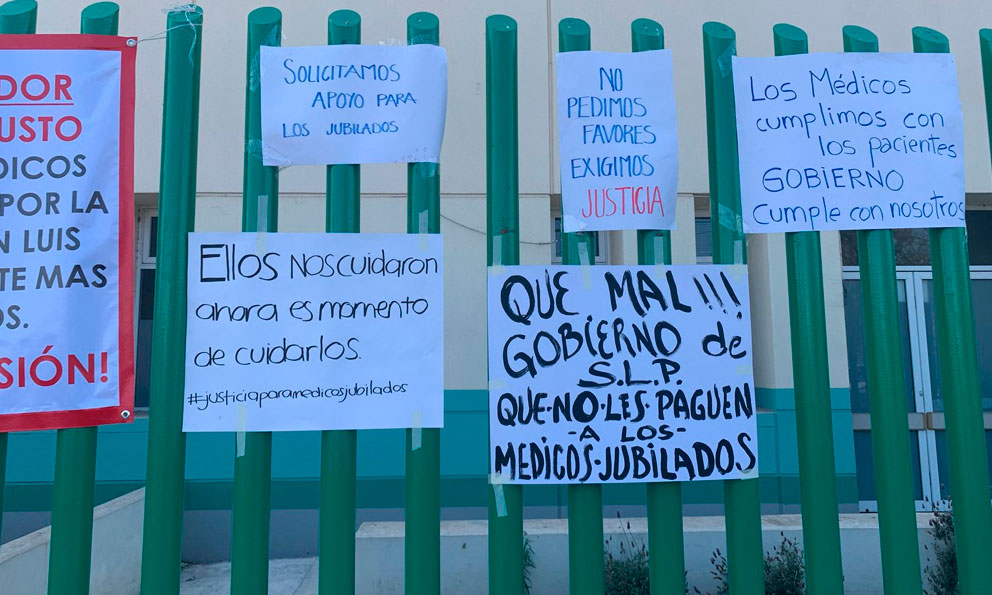 DOR
USTO
DICOS
POR LA
N LUIS
TE MAS
OS.
SIÓN!
SOLICITAMOS
APOYO PARA
LOS JUBILADOS
Ellos NOS cuidaron
ahora es momento
de cuidarlos.
#justiciaparamedicosjubilados
NO
PEDIMOS
FAVORES
EXIGIMOS
JUSTICIA
QUE MAL!!!
GOBIERNO de
S.L.P.
QUE·NO·LES·PAGUEN
-A LOS-
MEDICOS·JUBILADOS
Los Médicos
cumplimos con
los pacientes
GOBIERNO
Cumple con nosotros